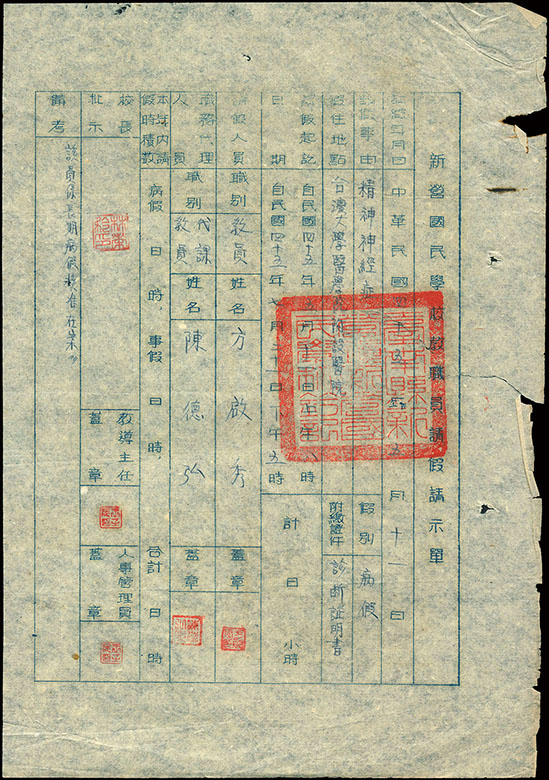 新營國民學校教職員請假請示單
中華民國四十五年五月十一日
請假事由 精神神經症 假別 病假
居住地點 台灣大學醫學院附設醫院 附繳證件 診断証明書
請假起訖日期 自民國四十五年五月十一日上午八時
自民國四十五年七月十一日下午五時 計 日 小時
請假人員 職別 教員 姓名 方啟秀 蓋章
職務代理人員 職別 代課教員 姓名 陳德弘 蓋章
本年內請假時積數 病假 日 時，事假 日 時， 合計 日 時
校長批示 教導主任蓋章 人事管理員蓋章
備考 該員係長期病假核准在案